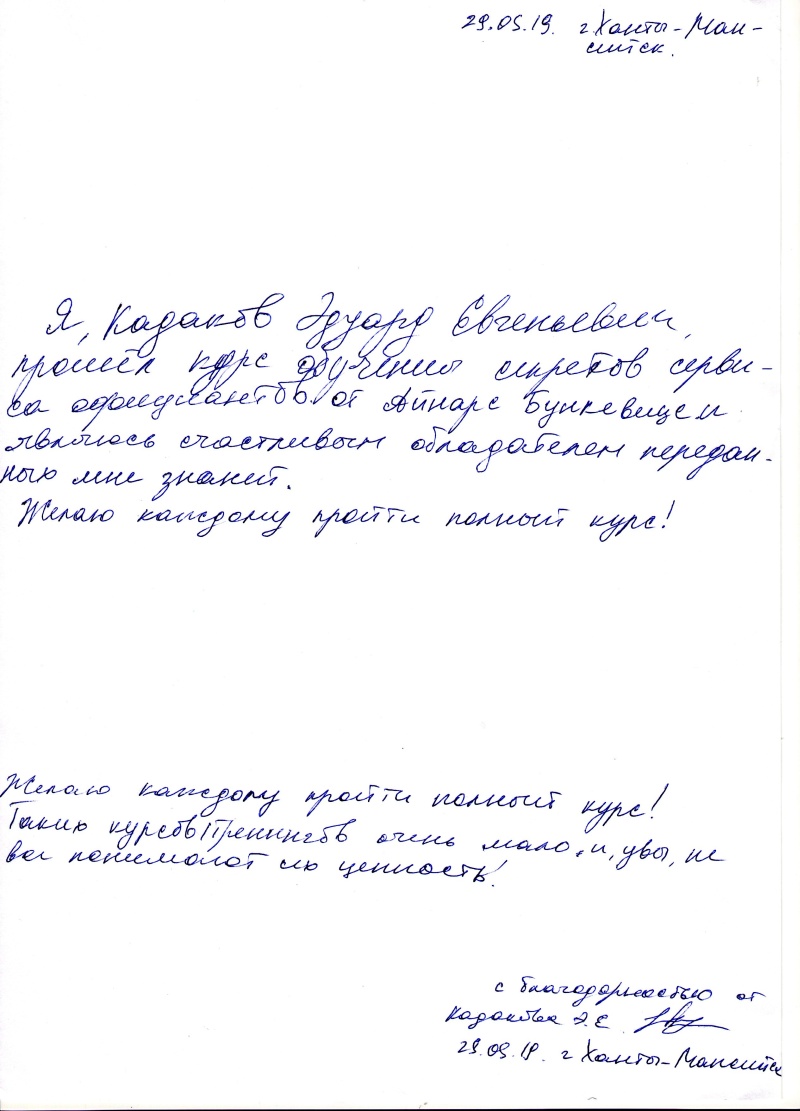 29.05.19. г. Ханты-Ман-
сийск.
Я, Кадаков Эдуард Евгеньевич,
прошёл курс обучения секретов серви-
са официантов от Айнарс Бункевицем
являюсь счастливым обладателем передан-
ных мне знаней.
Желаю каждому пройти полный курс!
Желаю каждому пройти полный курс!
Таких курсов/тренингов очень мало, и, увы, не
все понимают их ценность!
с благодарностью от
Кадакова Э.Е.
29.05.19. г Ханты-Мансийск